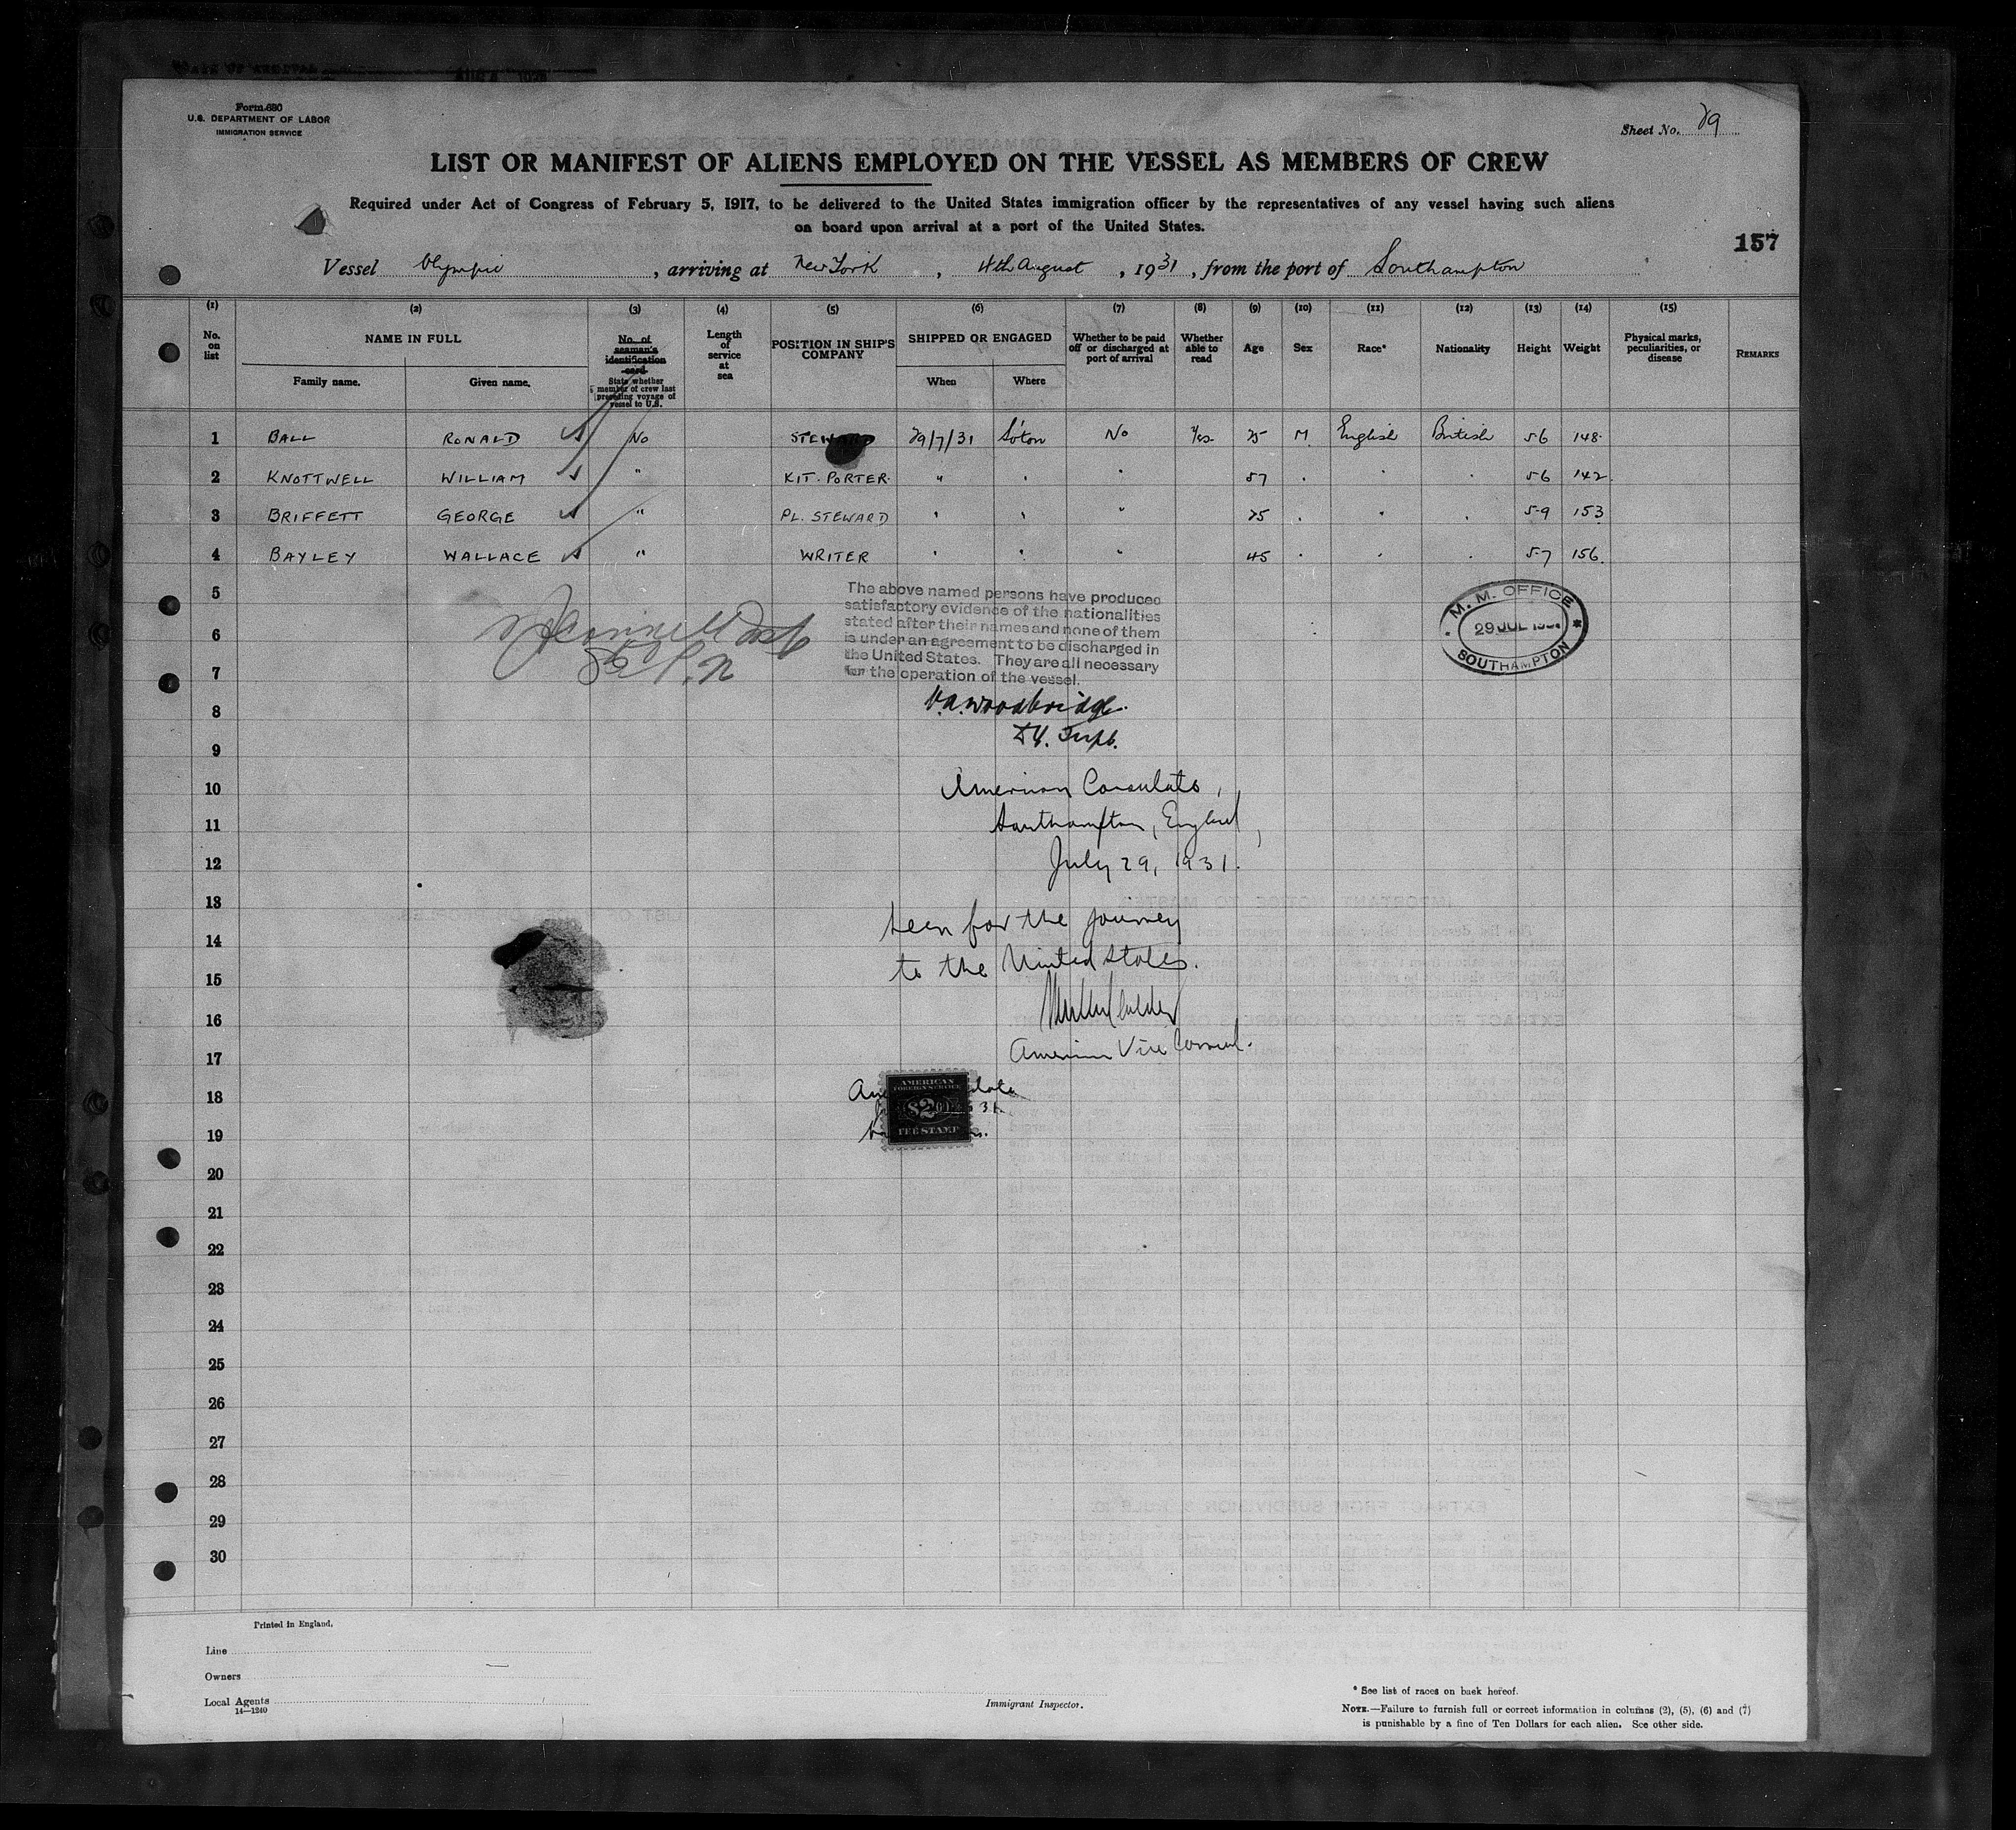 Form 680
U.S. DEPARTMENT OF LABOR
IMMIGRATION SERVICE
Sheet No. 29
LIST OR MANIFEST OF ALIENS EMPLOYED ON THE VESSEL AS MEMBERS OF CREW
Required under Act of Congress of February 5, 1917, to be delivered to the United States immigration officer by the representatives of any vessel having such aliens
on board upon arrival at a port of the United States.
157
Vessel Olympic, arriving at New York, 4th August, 1931, from the port of Southampton
(1) (2) (3) (4) (5) (6) (7) (8) (9) (10) (11) (12) (13) (14) (15)
No. on list NAME IN FULL Family name. Given name. No. of seaman's identification card State whether member of crew last preceding voyage of vessel to U.S. Length of service at sea POSITION IN SHIP'S COMPANY SHIPPED OR ENGAGED When Where Whether to be paid off or discharged at port of arrival Whether able to read Age Sex Race* Nationality Height Weight Physical marks, peculiarities, or disease REMARKS
1 BALL RONALD No STEWARD 29/7/31 So'ton No Yes 25 M. English British 5 6 148
2 KNOTTWELL WILLIAM " KIT. PORTER " " " 57 5 6 142
3 BRIFFETT GEORGE " PL. STEWARD " " " 25 5-9 153
4 BAYLEY WALLACE " WRITER " " " 45 5-7 156
5
6
7
The above named persons have produced
satisfactory evidence of the nationalities
stated after their names and none of them
is under an agreement to be discharged in
the United States. They are all necessary
for the operation of the vessel.
M. M. OFFICE
29 JUL 1931
SOUTHAMPTON
8 Woodbridge
9 Supt.
10 American Consulate,
11 Southampton, England,
12 July 29, 1931.
13 Seen for the journey
14 to the United States.
15
16
17 American Vice Consul.
18
AMERICAN
FOREIGN SERVICE
$2
FEE STAMP
19
20
21
22
23
24
25
26
27
28
29
30
Printed in England.
Line
Owners
Local Agents
14—1240
Immigrant Inspector.
* See list of races on back hereof.
NOTE.—Failure to furnish full or correct information in columns (2), (5), (6) and (7)
is punishable by a fine of Ten Dollars for each alien. See other side.